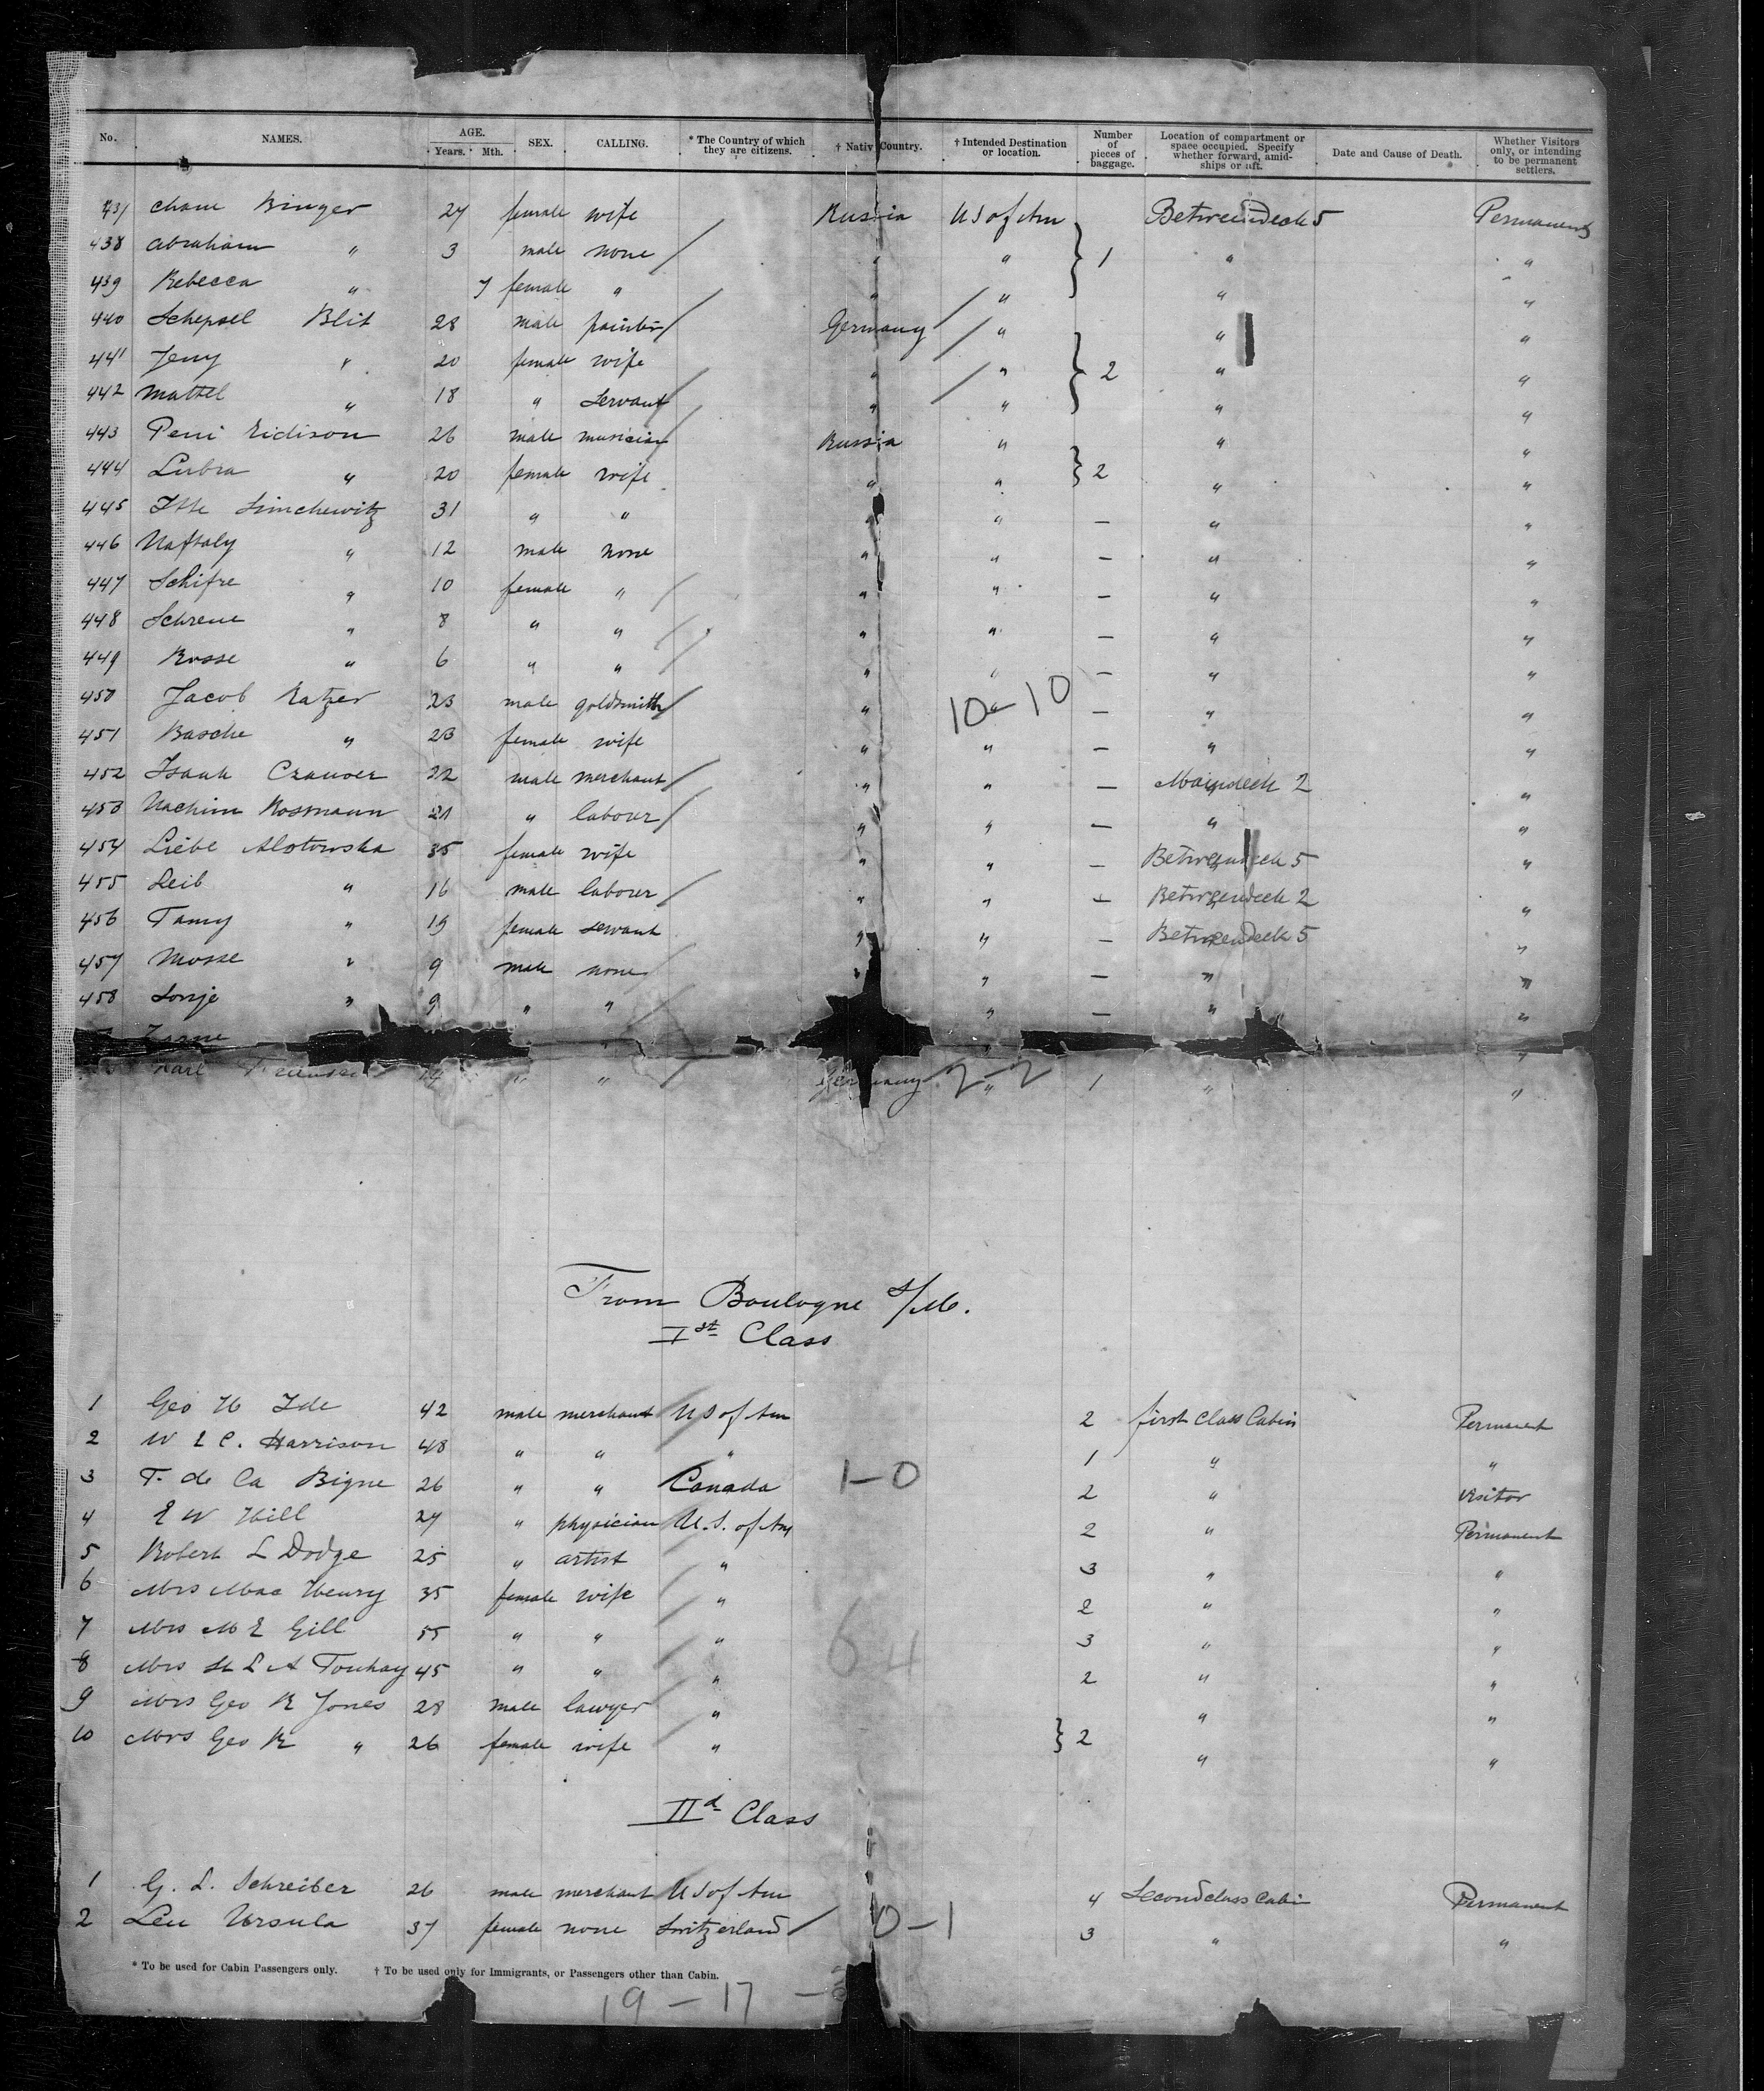 No. NAMES. AGE. Years. Mth. SEX. CALLING. * The Country of which they are citizens. † Native Country. † Intended Destination or location. Number of pieces of baggage. Location of compartment or space occupied. Specify whether forward, amidships or aft. Date and Cause of Death. Whether Visitors only, or intending to be permanent settlers.
437 Chane Binger 27 female wife Russia US of Am Betweendeck 5 Permanent
438 Abraham " 3 male none " " 1 " "
439 Rebecca " 7 female " " " " "
440 Schepsel Blit 28 male painter Germany " " "
441 Jeny " 20 female wife " " 2 " "
442 Mattel " 18 " servant " " " "
443 Peni Eidison 26 male musician Russia " " "
444 Lubra " 20 female wife " " 2 " "
445 Itte Simchewitz 31 " " " " — " "
446 Naftaly " 12 male none " " — " "
447 Schifre " 10 female " " " — " "
448 Schreue " 8 " " " " — " "
449 Rosse " 6 " " " " — " "
450 Jacob Katzer 23 male goldsmith " " — " "
10-10
451 Basche " 23 female wife " " — " "
452 Isaak 22 male merchant " " — Maindeck 2 "
453 Nachim Rosmann 21 " labourer " " — " "
454 Liebe Alotowska 35 female wife " " — Betweendeck 5 "
455 Leib " 16 male labourer " " — Betweendeck 2 "
456 Tamy " 19 female servant " " — Betweendeck 5 "
457 Mosse " 9 male none " " — " "
458 Sonje " 9 " " " — " "
Karl " " Germany 2-2 " 1 " "
From Boulogne s/M.
Ist Class
1 Geo H Ide 42 male merchant US of Am 2 first class Cabin Permanent
2 W E C. Harrison 48 " " " 1 " "
3 T. de La Bigne 26 " " Canada 1-0 2 " visitor
4 E W Hill 27 " physician U.S. of Am 2 " Permanent
5 Robert L Dodge 25 " artist " 3 " "
6 Mrs Mac Henry 35 female wife " 2 " "
7 Mrs M E Gill 55 " " " 3 " "
64
8 Mrs St L A Touhay 45 " " " 2 " "
9 Mrs Geo R Jones 28 male lawyer " " "
10 Mrs Geo R " 26 female wife " 2 " "
IId Class
1 G. L. Schreiber 26 male merchant US of Am 4 Secondclass Cabi Permanent
2 Leu Ursula 37 female none Switzerland 0-1 3 " "
* To be used for Cabin Passengers only. † To be used only for Immigrants, or Passengers other than Cabin.
19-17 -